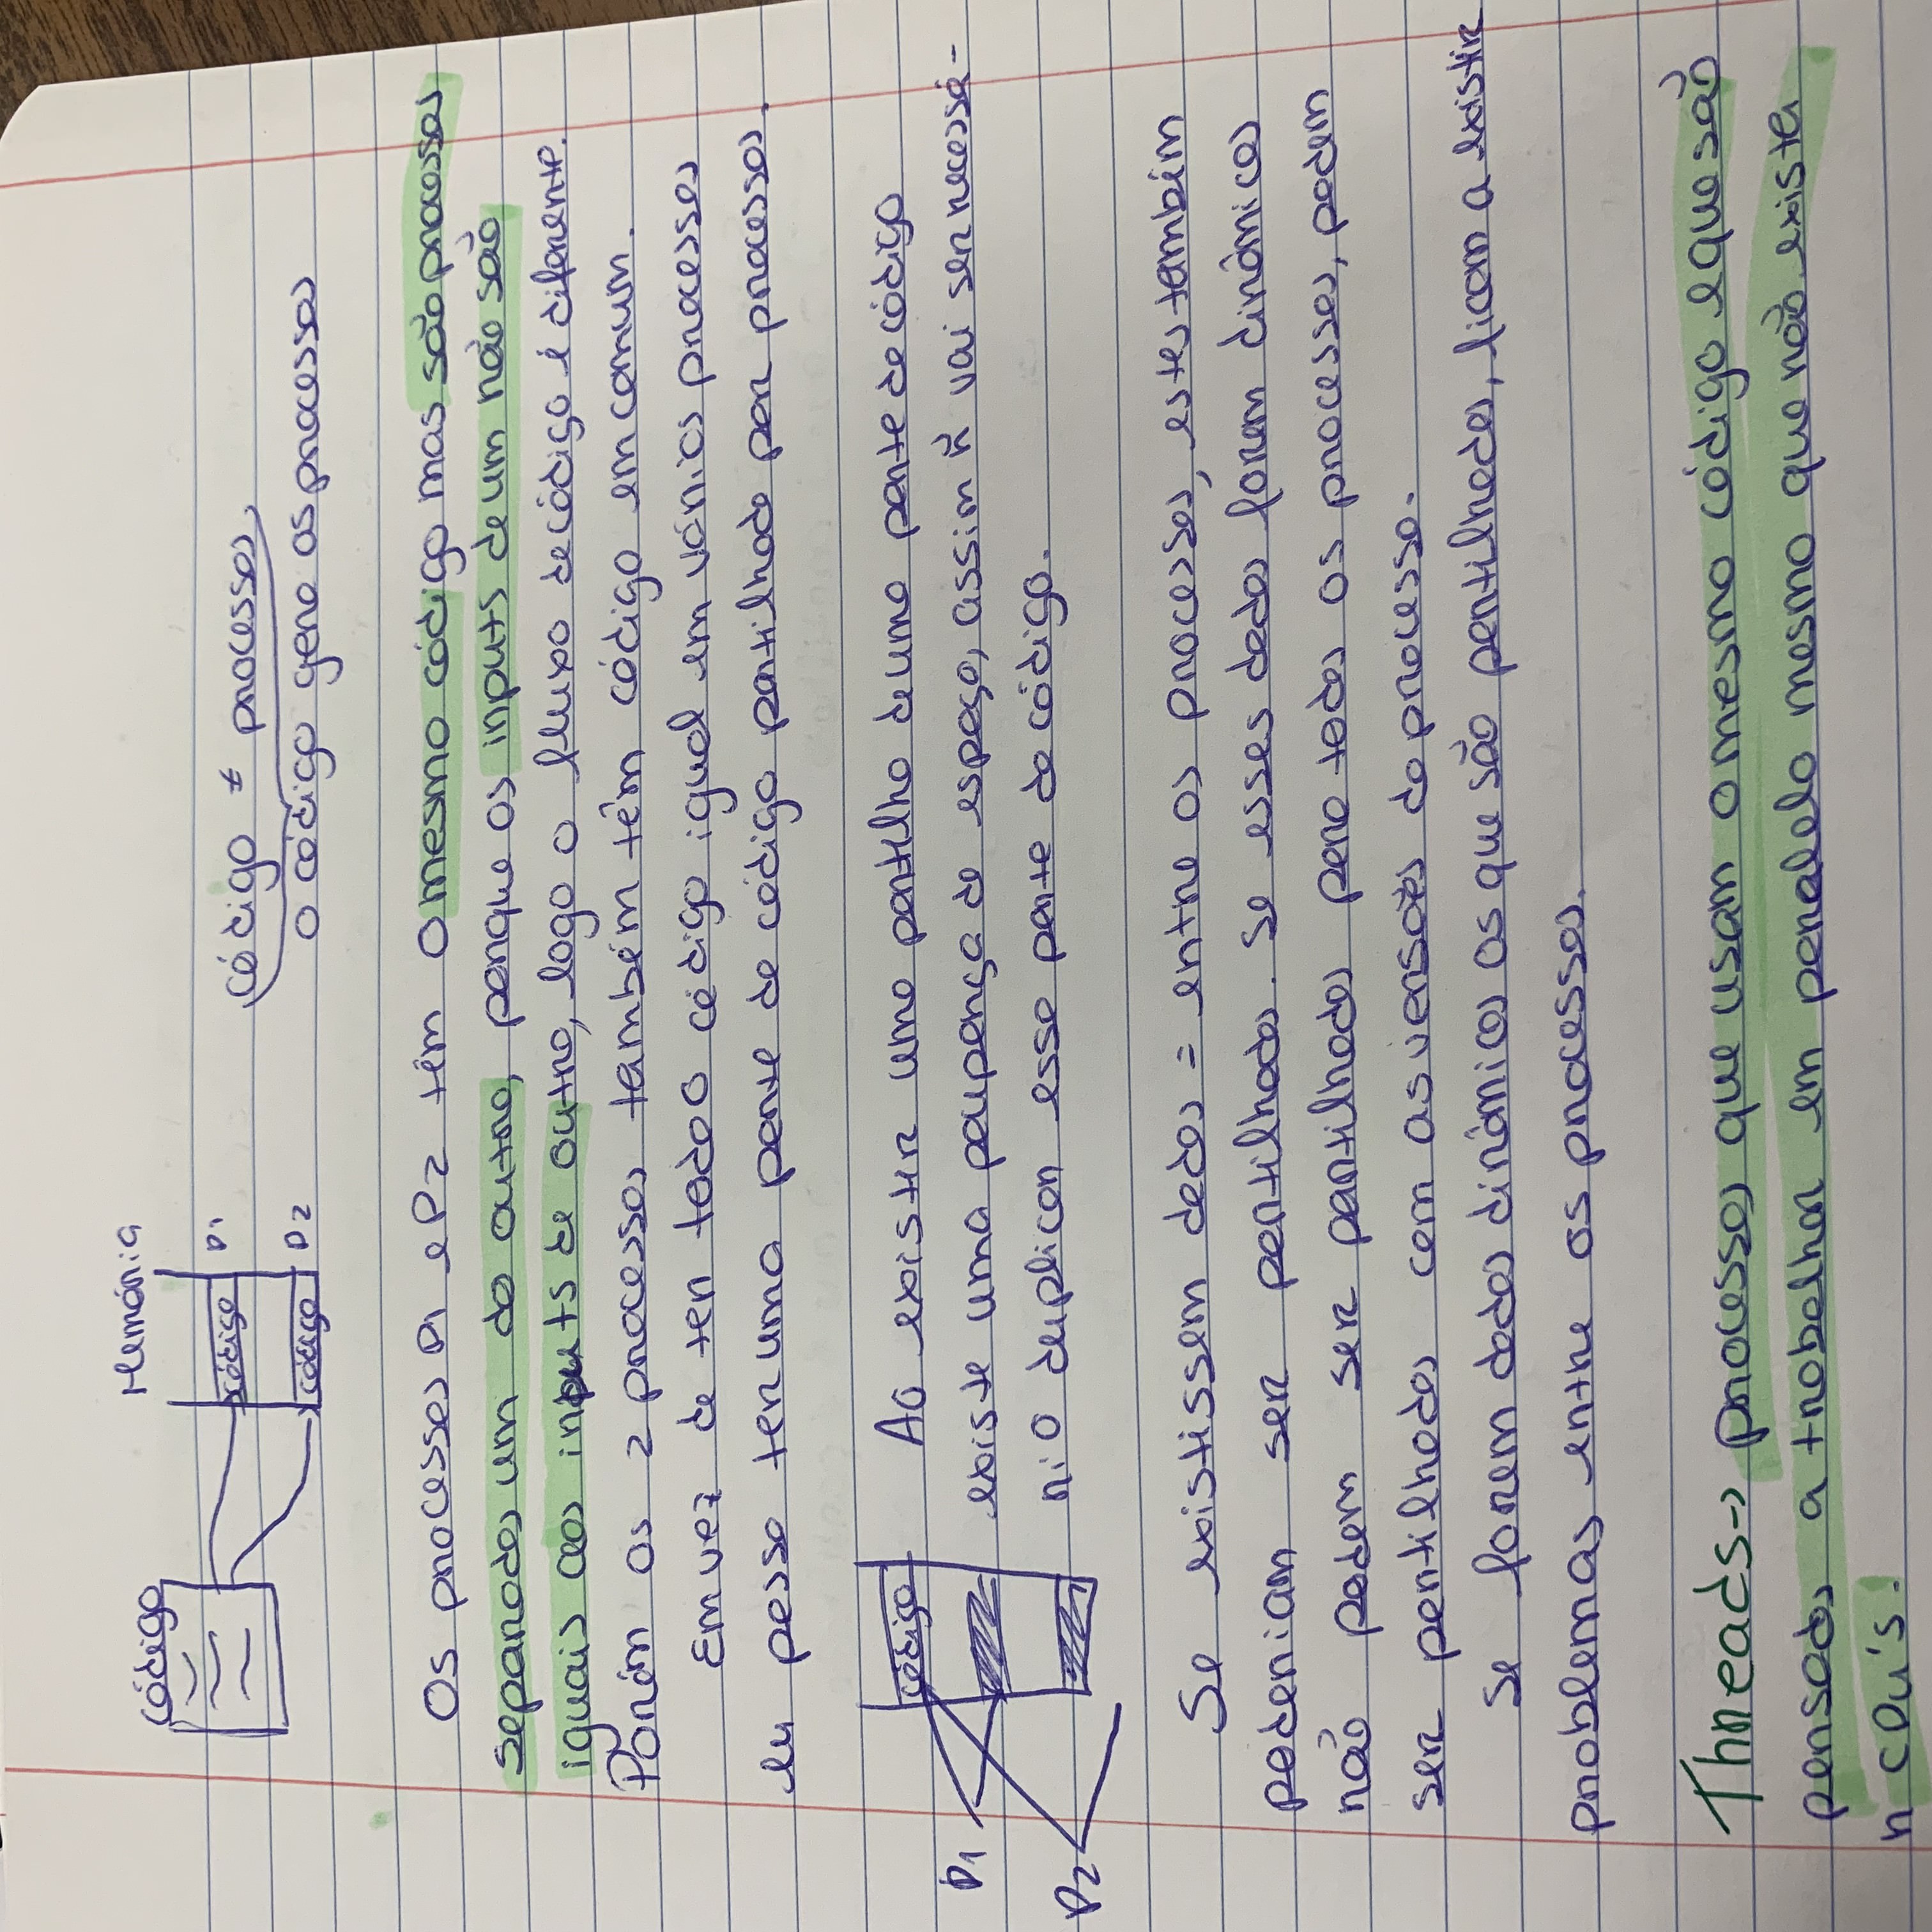 Memória
código
código P1
código ≠ processos
código P2
o código gera os processos
Os processos P1 e P2 têm o mesmo código mas são processos
separados um do outro, porque os inputs de um não são
iguais aos inputs de outro, logo o fluxo de código é diferente.
Porém os 2 processos também têm código em comum.
Em vez de ter todo o código igual em vários processos
eu posso ter uma parte de código partilhado por processos.
código
Ao existir uma partilha de uma parte de código
P1
existe uma poupança de espaço, assim ñ vai ser necessá-
rio duplicar essa parte de código.
P2
Se existissem dados = entre os processos, estes também
poderiam ser partilhados. Se esses dados forem dinâmicos
não podem ser partilhados para todos os processos, podem
ser partilhados com as versões do processo.
Se forem dados dinâmicos os que são partilhados, ficam a existir
problemas entre os processos.
Threads-> processos que usam o mesmo código e que são
pensados a trabalhar em paralelo mesmo que não exista
n CPU's!